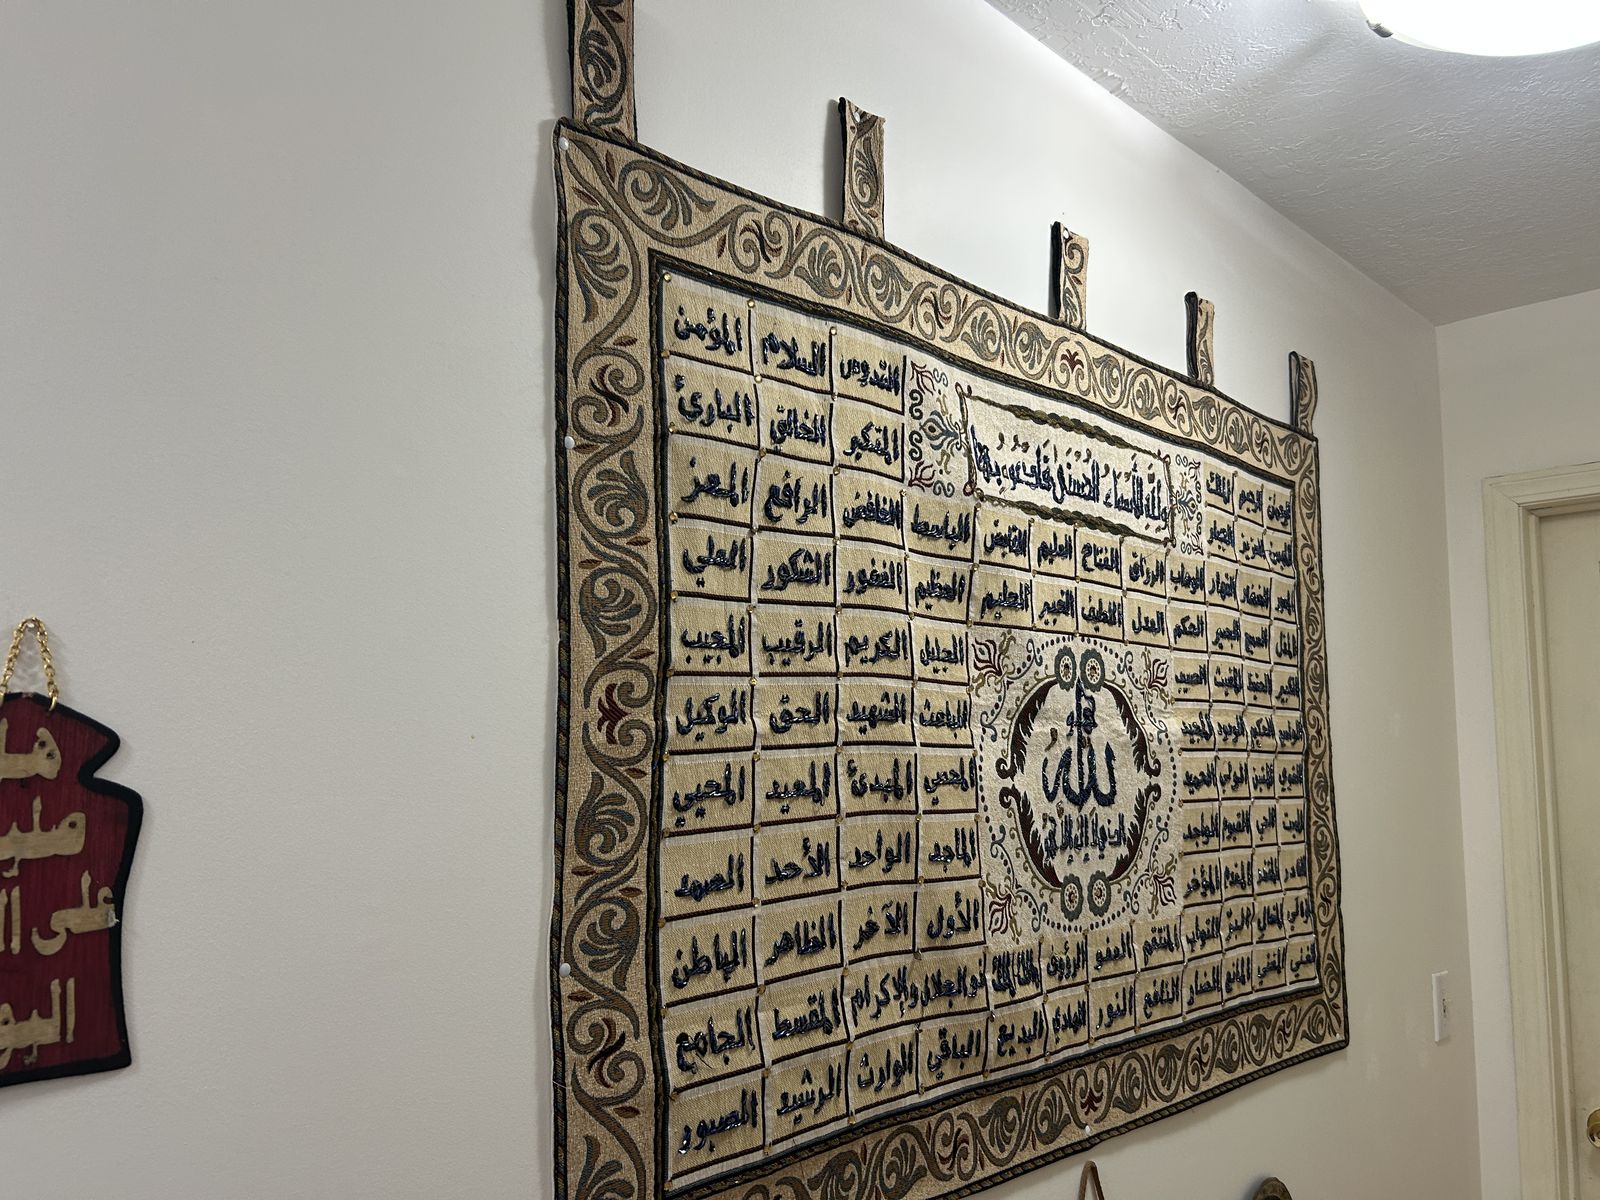 ولله الأسماء الحسنى فادعوه بها
الرحمن الرحيم الملك القدوس السلام المؤمن
المهيمن العزيز الجبار المتكبر الخالق البارئ
المصور الغفار القهار الوهاب الرزاق الفتاح العليم القابض الباسط الخافض الرافع المعز
المذل السميع البصير الحكم العدل اللطيف الخبير الحليم العظيم الغفور الشكور العلي
الكبير الحفيظ المقيت الحسيب الجليل الكريم الرقيب المجيب
الواسع الحكيم الودود المجيد الباعث الشهيد الحق الوكيل
القوي المتين الولي الحميد المحصي المبدئ المعيد المحيي
المميت الحي القيوم الواجد الماجد الواحد الأحد الصمد
القادر المقتدر المقدم المؤخر الأول الآخر الظاهر الباطن
الوالي المتعالي البر التواب المنتقم العفو الرؤوف مالك الملك ذو الجلال والإكرام المقسط الجامع
الغني المغني المانع الضار النافع النور الهادي البديع الباقي الوارث الرشيد الصبور
هو
الله
الذي لا إله إلا هو
على